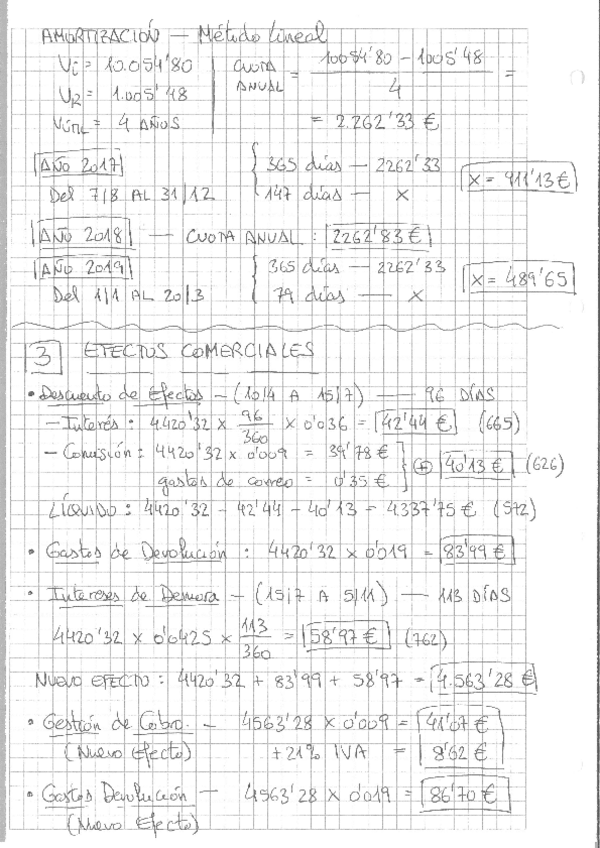 AMORTIZACIÓN — Método lineal
Vi = 10.054'80
VR = 1.005'48
Vútil = 4 AÑOS
CUOTA ANUAL = 10054'80 - 1005'48 / 4 =
= 2.262'33 €
AÑO 2017
Del 7/8 AL 31/12
365 días — 2262'33
147 días — x
x = 911'13 €
AÑO 2018 — CUOTA ANUAL : 2262'83 €
AÑO 2019
Del 1/1 AL 20/3
365 días — 2262'33
79 días — x
x = 489'65
3 EFECTOS COMERCIALES
• Descuento de Efectos - (10/4 A 15/7) — 96 DÍAS
- Interés : 4420'32 x 96/360 x 0'036 = 42'44 € (665)
- Comisión : 4420'32 x 0'009 = 39'78 €
gastos de correo = 0'35 €
⊕ 40'13 € (626)
LÍQUIDO : 4420'32 - 42'44 - 40'13 = 4337'75 € (572)
• Gastos de Devolución : 4420'32 x 0'019 = 83'99 €
• Intereses de Demora - (15/7 A 5/11) — 113 DÍAS
4420'32 x 0'0425 x 113/360 = 58'97 € (762)
NUEVO EFECTO : 4420'32 + 83'99 + 58'97 = 4.563'28 €
• Gestión de Cobro. - 4563'28 x 0'009 = 41'07 €
(Nuevo Efecto) +21% IVA = 8'62 €
• Gastos Devolución — 4563'28 x 0'019 = 86'70 €
(Nuevo Efecto)